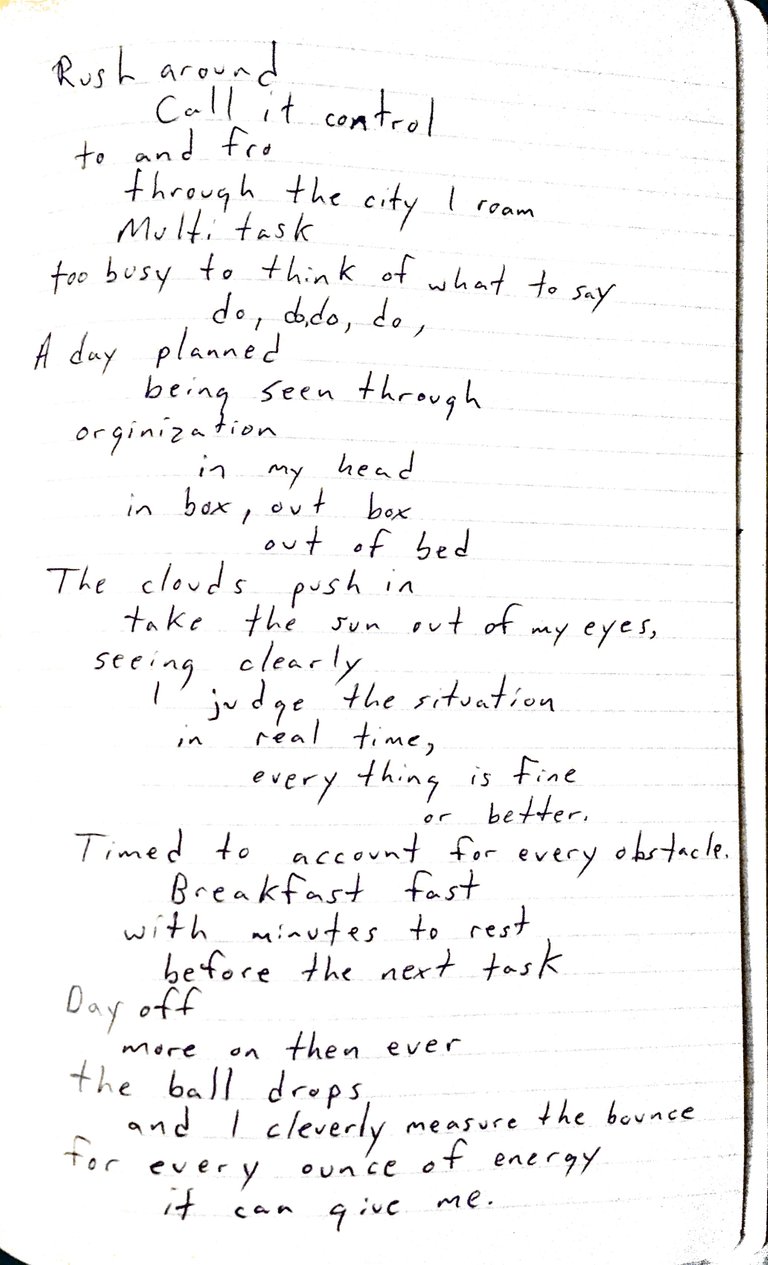 Rush around
Call it control
to and fro
through the city I roam
Multi task
too busy to think of what to say
do, do,do, do,
A day planned
being seen through
orginization
in my head
in box, out box
out of bed
The clouds push in
take the sun out of my eyes,
seeing clearly
I judge the situation
in real time,
every thing is fine
or better.
Timed to account for every obstacle.
Breakfast fast
with minutes to rest
before the next task
Day off
more on then ever
the ball drops
and I cleverly measure the bounce
for every ounce of energy
it can give me.